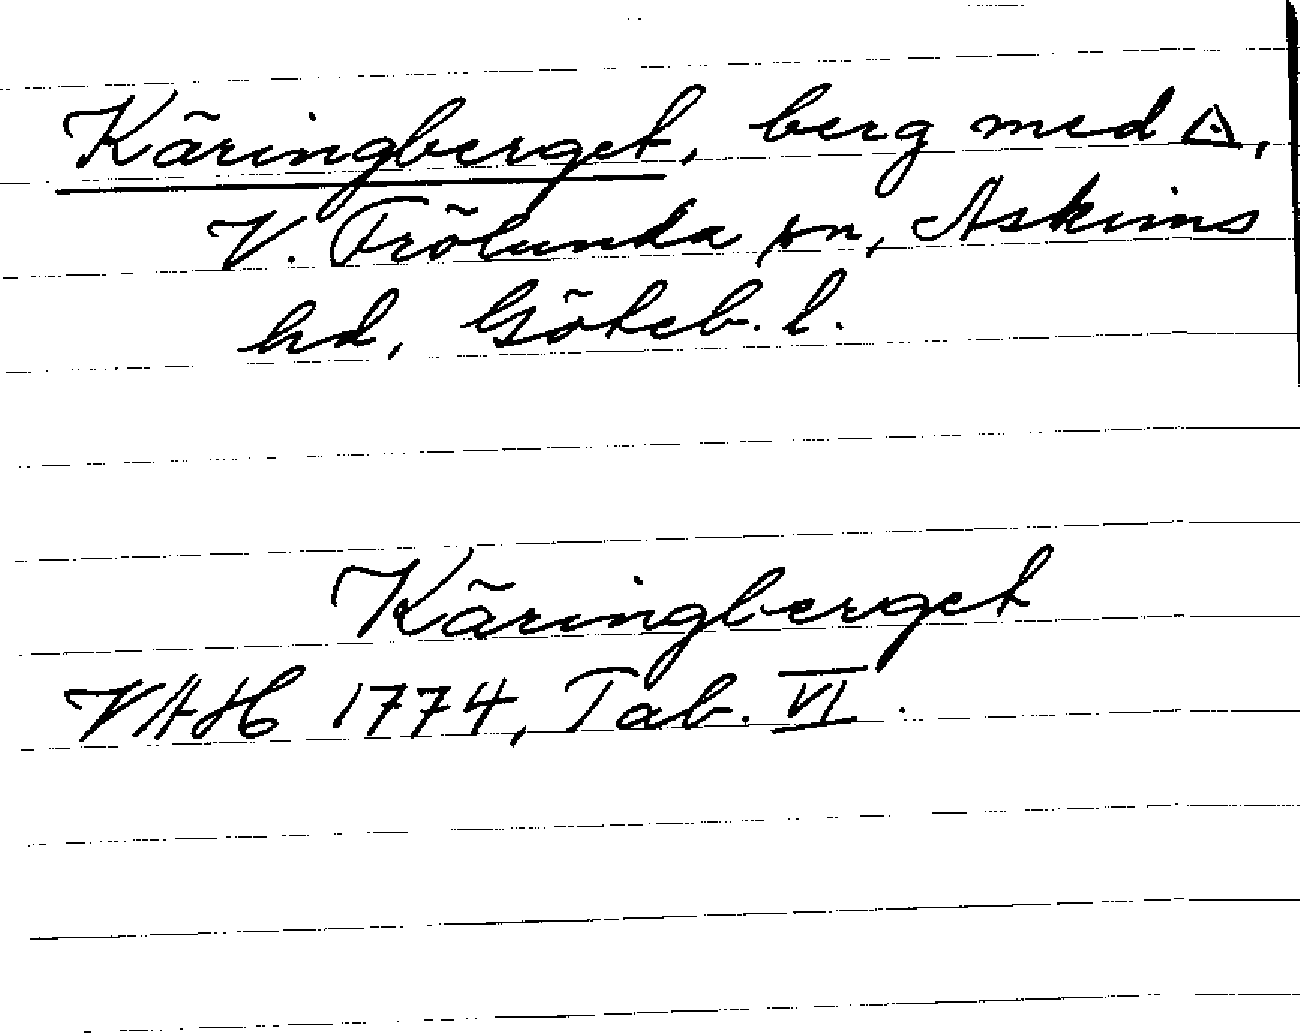 Käringberget, berg med ◬,
V. Frölunda sn, Askims
hd, Göteb. l.
Käringberget
VAH 1774, Tab. VI.